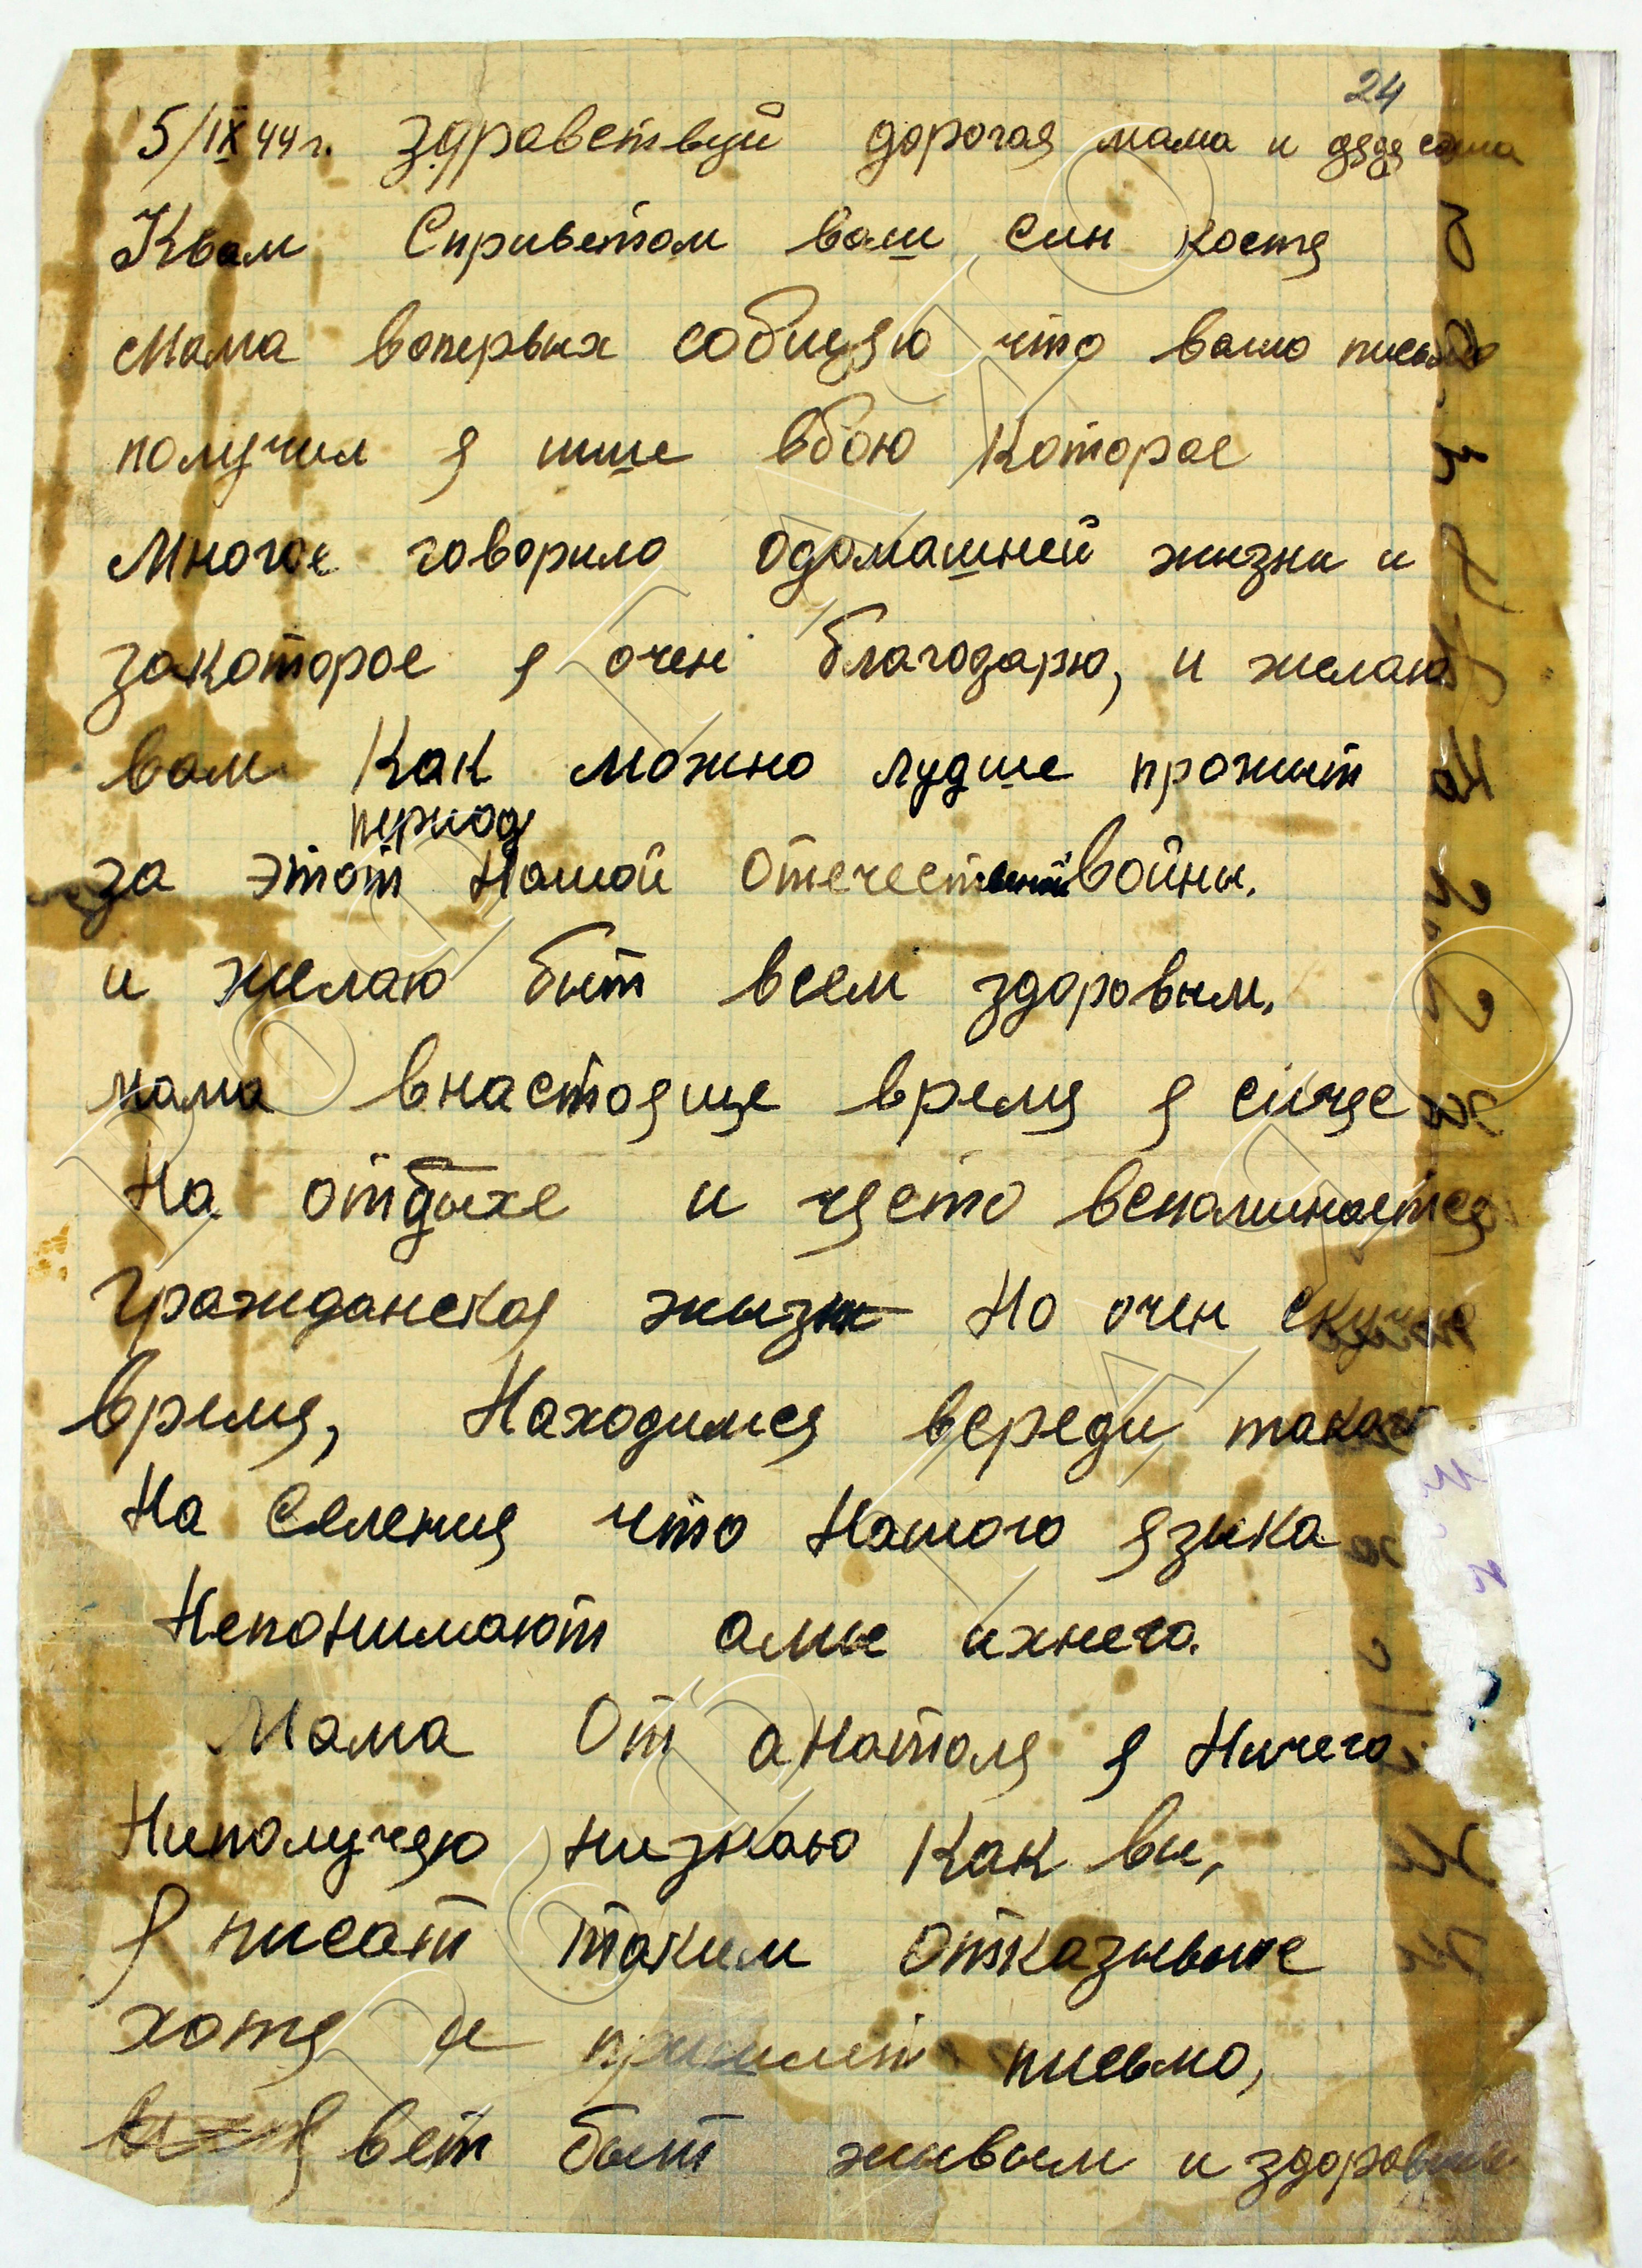 24
5/IX 44 г. Здравствуй дорогая мама и дядя саша
Квам Сприветом ваш син костя
Мама вопервых собщяю что вашо письмо
получил я ише вбою Которое
Многое говорило одомашней жизни и
закоторое я очен благодарю, и желаю
вам Как можно лудше прожит
период
за этот Нашой Отечественой войны.
и желаю быт всем здоровым.
мама внастояще время я сичяс
На отдыхе и чясто вспоминается
Гражданская жызн Но очен скучно
время, Находимся вереди такого
На Селения что Нашого языка
Непонимают амы ихнего.
Мама От анатоля я Ничего
Ниполучяю низнаю Как вы,
я писат таким отказываюс
хотя и пришлет письмо,
я вет быт живым и здоровым